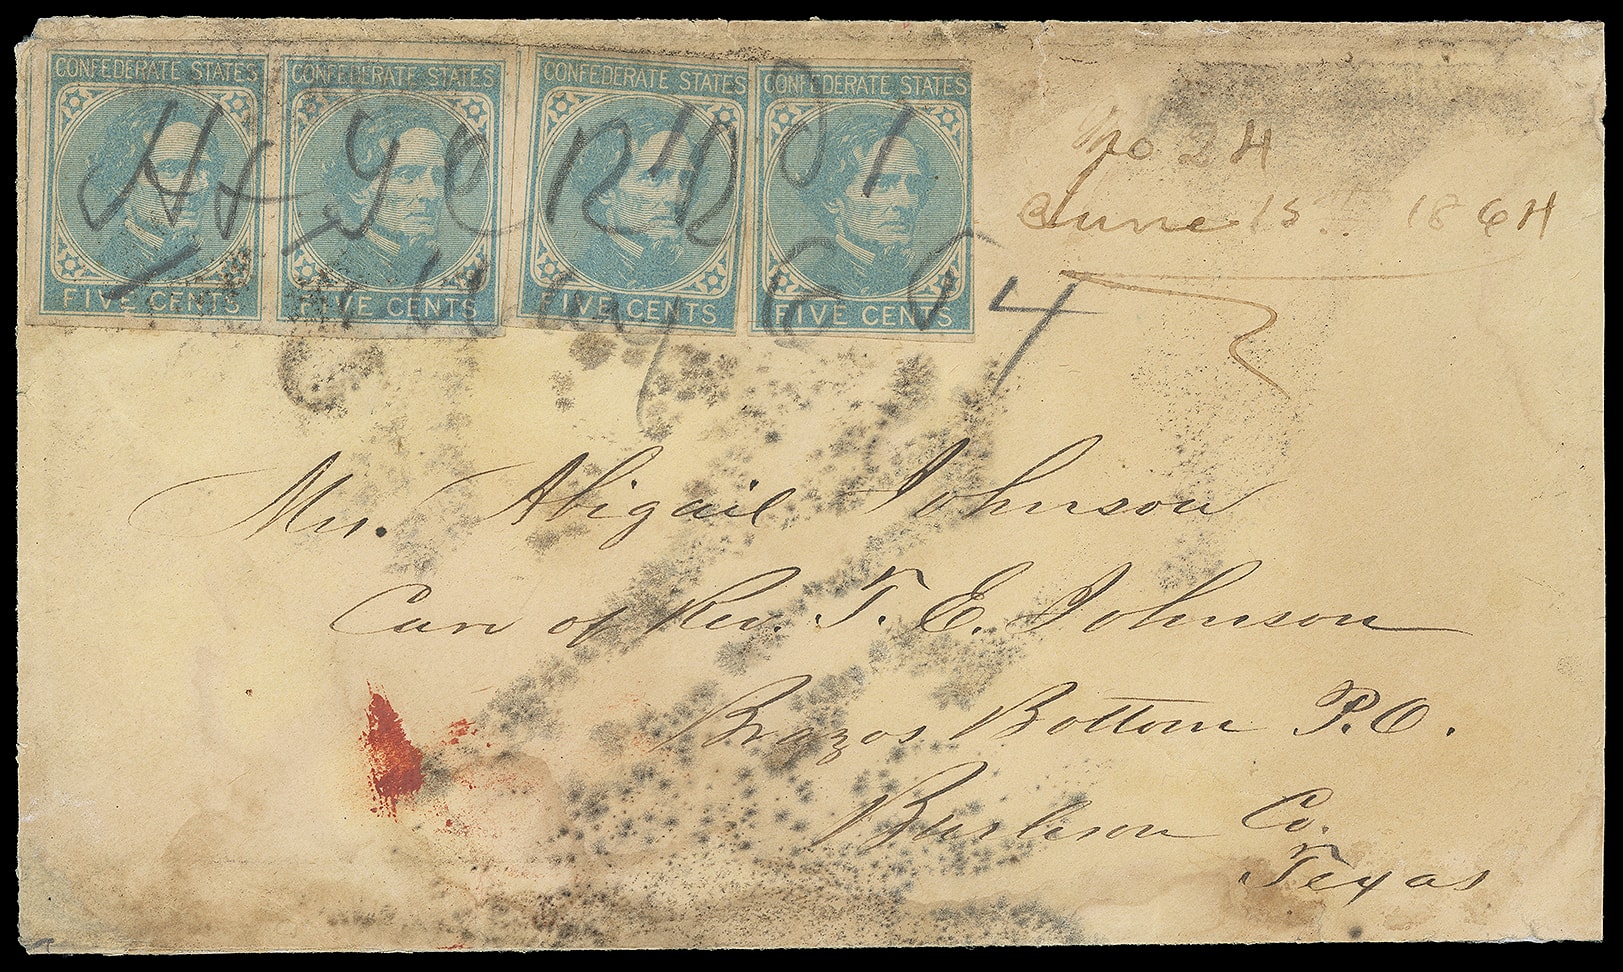 CONFEDERATE STATES CONFEDERATE STATES CONFEDERATE STATES CONFEDERATE STATES
FIVE CENTS FIVE CENTS FIVE CENTS FIVE CENTS
May 6 64
No 24
June 15th 1864
Mrs. Abigail Johnson
Care of Rev. T. E. Johnson
Brazos Bottom P.O.
Burleson Co.
Texas